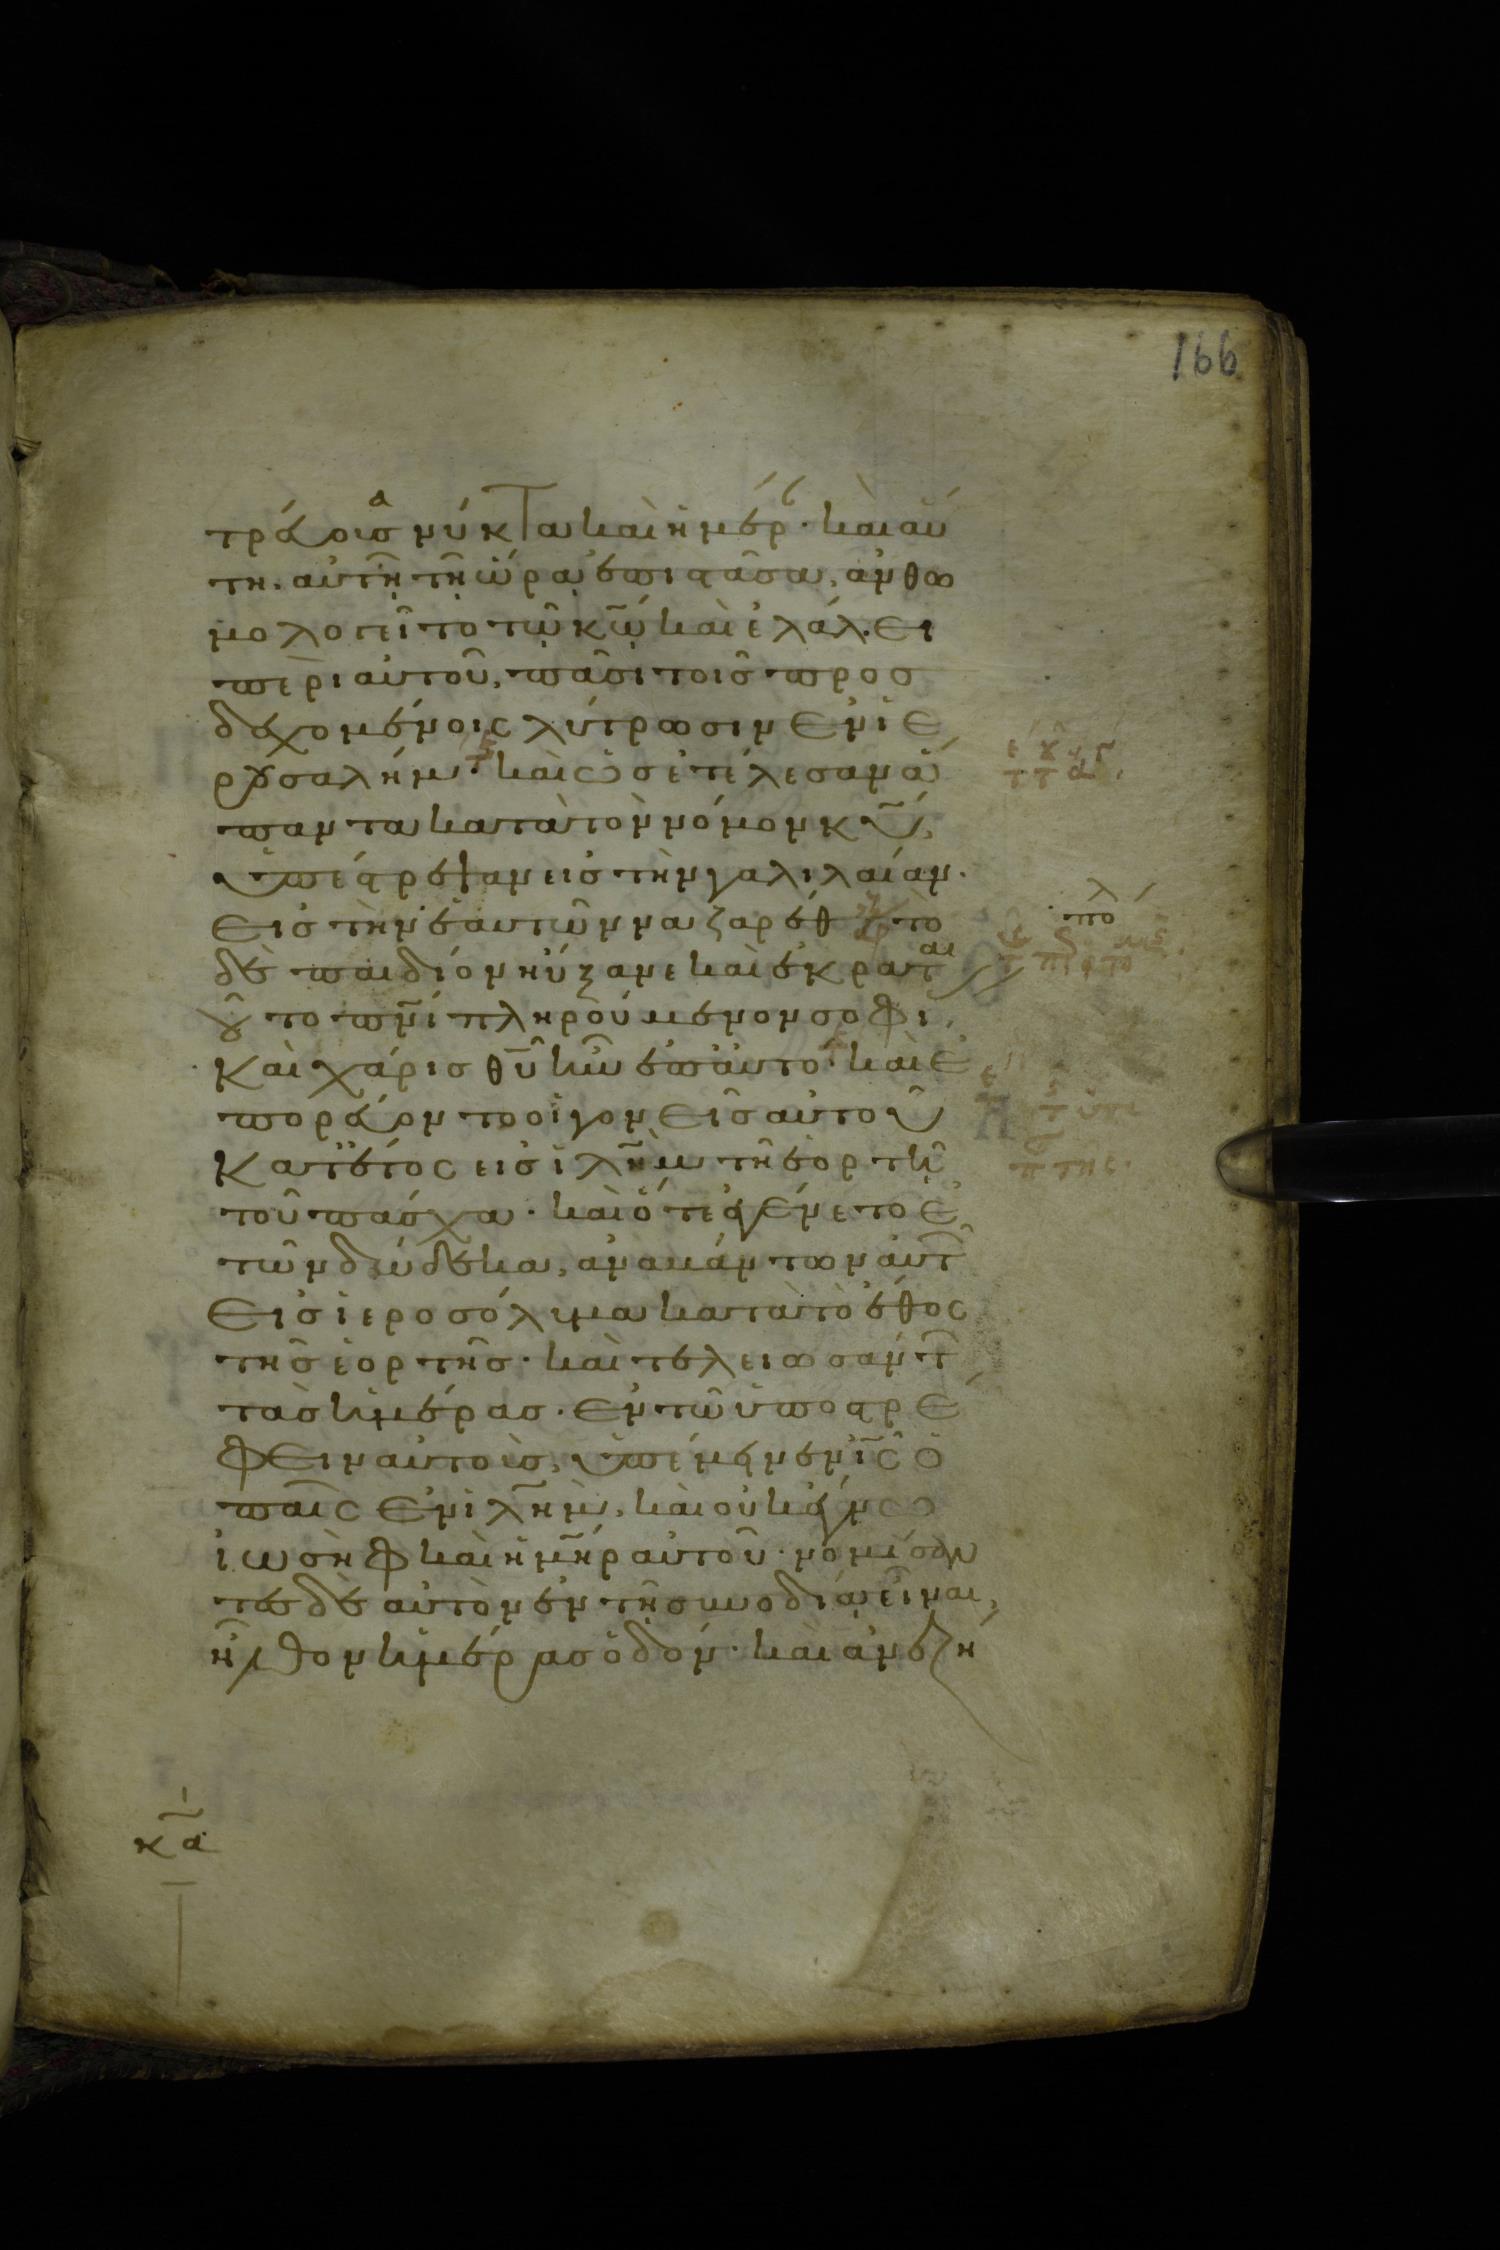 166
τρεύουσα νύκτα καὶ ἡμέρ· καὶ αὕ
τη, αὐτῇ τῇ ὥρᾳ ἐπιστᾶσα, ἀνθω
μολογεῖτο τῷ κ̅ω̅ καὶ ἐλάλει
περὶ αὐτοῦ, πᾶσι τοῖς προσ
δεχομένοις λύτρωσιν ἐν ἱε
ρουσαλήμ· καὶ ὡς ἐτέλεσαν ἅ
παντα κατὰ τὸν νόμον κ̅υ̅,
ὑπέστρεψαν εἰς τὴν γαλιλαίαν·
εἰς τὴν ἑαυτῶν ναζαρέθ τὸ
δὲ παιδίον ηὔξανε καὶ ἐκραται
οῦτο π̅ν̅ι πληρούμενον σοφί,
καὶ χάρις θ̅υ̅ ἦν ἐπ' αὐτό· καὶ ἐ
πορεύοντο οἱ γονεῖς αὐτοῦ
κατ' ἔτος εἰς ἰλ̅η̅μ τῇ ἑορτῇ
τοῦ πάσχα· καὶ ὅτε ἐγένετο ἐ
τῶν δώδεκα, ἀναβάντων αὐτ
εἰς ἱεροσόλυμα κατὰ τὸ ἔθος
τῆς ἑορτῆς· καὶ τελειωσάντ
τὰς ἡμέρας· ἐν τῷ ὑποστρέ
φειν αὐτοὺς, ὑπέμεινεν ι̅ς̅ ὁ
παῖς ἐν ἰλ̅η̅μ, καὶ οὐκ ἔγνω
ἰωσὴφ καὶ ἡ μ̅η̅ρ αὐτοῦ· νομίσαν
τες δὲ αὐτὸν ἐν τῇ συνοδίᾳ εἶναι,
ἦλθον ἡμέρας ὁδόν· καὶ ἀνεζή
κ̅α̅